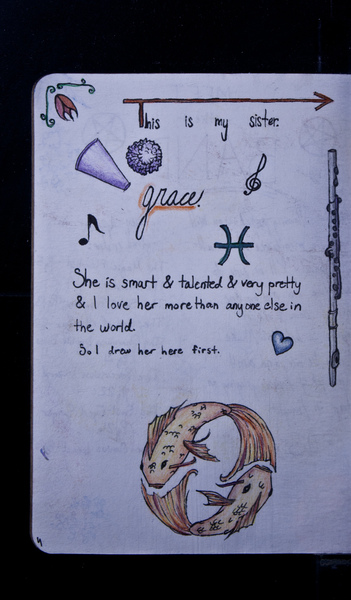 This is my sister.
grace.
She is smart & talented & very pretty
& I love her more than anyone else in
the world.
So I drew her here first.